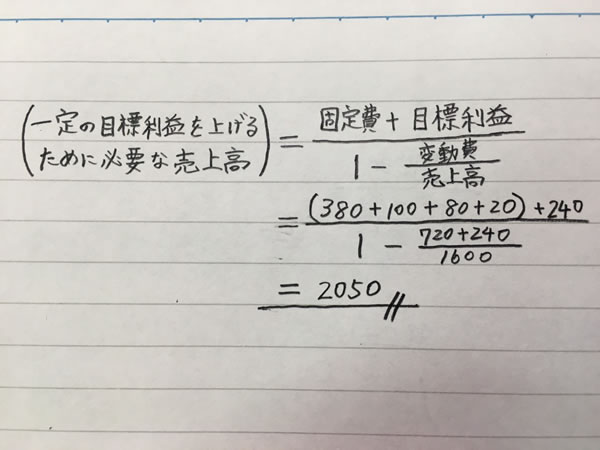 (一定の目標利益を上げる
ために必要な売上高)
= 固定費 + 目標利益
1 - 変動費
売上高
= (380+100+80+20) +240
1 - 720+240
1600
= 2050